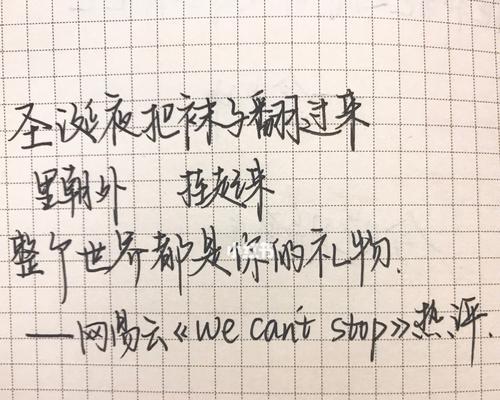 圣诞夜把袜子翻过来
里朝外 挂起来
整个世界都是你的礼物.
——网易云《we can't stop》热评.
小红书